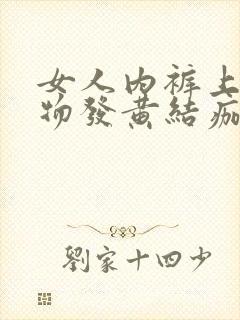 女人内裤上
物發黃結痂
劉家十四少